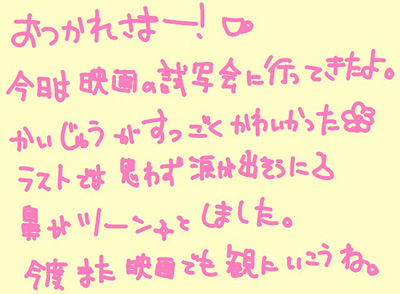 おつかれさまー!
今日は映画の試写会に行ってきたよ。
かいじゅうがすっごくかわいかった
ラストでは思わず涙が出そうに
鼻がツーンとしました。
今度また映画でも観にいこうね。